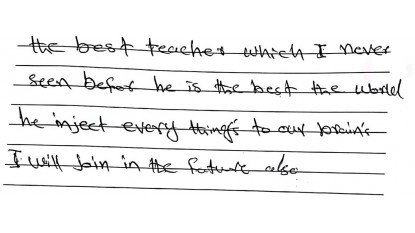 the best teacher which I never
seen befor he is the best the world
he inject every thing's to our brain's
I will join in the future also